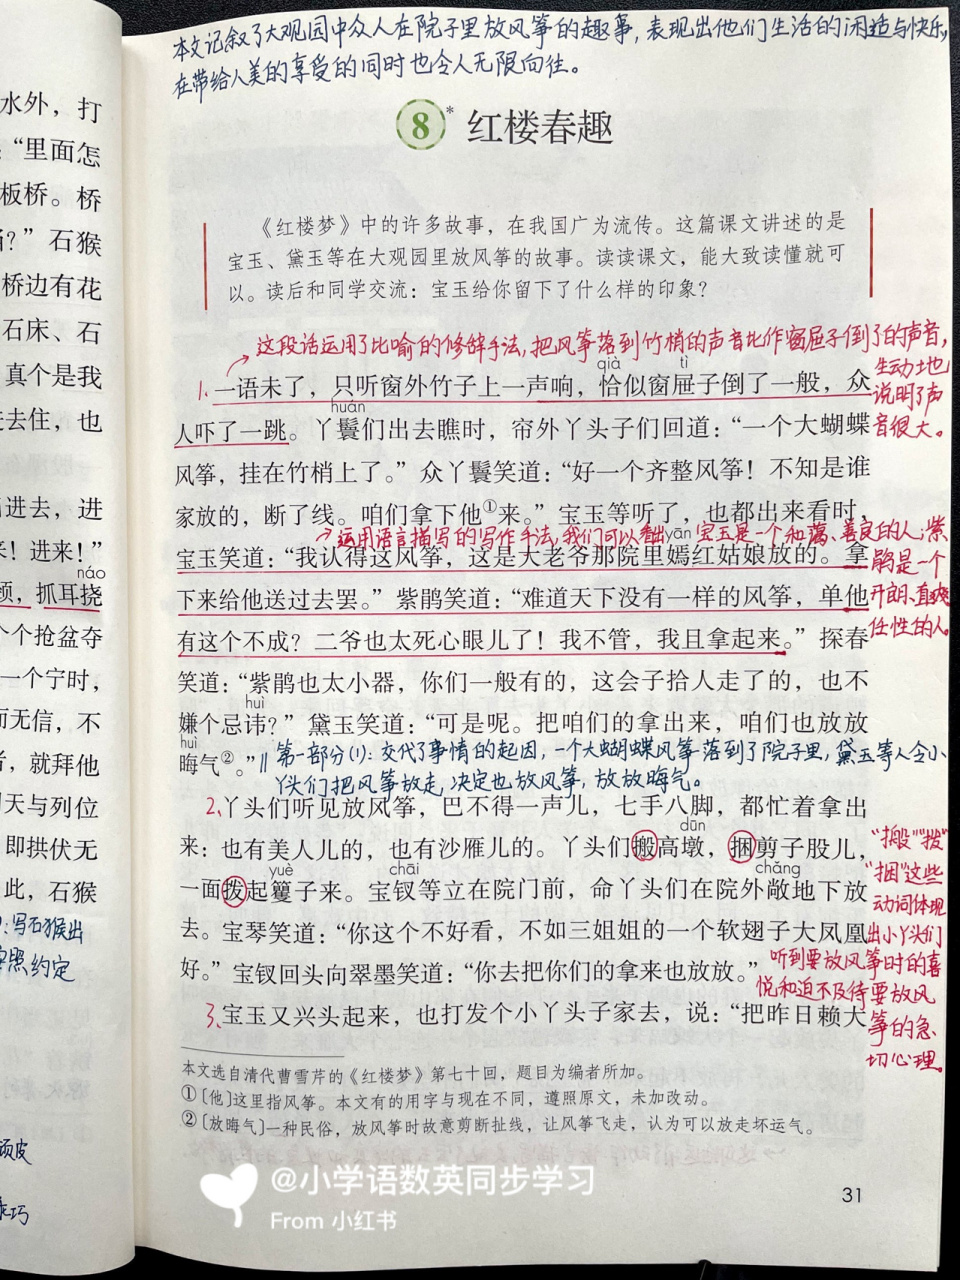 水外，打
“里面怎
板桥。桥
？”石猴
桥边有花
石床、石
真个是我
去住，也
进去，进
来！进来！”
náo
顽，抓耳挠
个个抢盆夺
一个宁时，
而无信，不
，就拜他
天与列位
即拱伏无
此，石猴
：写石猴出
照约定
顽皮
乖巧
本文记叙了大观园中众人在院子里放风筝的趣事，表现出他们生活的闲适与快乐，
在带给人美的享受的同时也令人无限向往。
8* 红楼春趣
《红楼梦》中的许多故事，在我国广为流传。这篇课文讲述的是
宝玉、黛玉等在大观园里放风筝的故事。读读课文，能大致读懂就可
以。读后和同学交流：宝玉给你留下了什么样的印象？
这段话运用了比喻的修辞手法，把风筝落到竹梢的声音比作窗屉子倒了的声音，
生动地
说明了声
音很大。
qià tì
1. 一语未了，只听窗外竹子上一声响，恰似窗屉子倒了一般，众
huán
人吓了一跳。丫鬟们出去瞧时，帘外丫头子们回道：“一个大蝴蝶
风筝，挂在竹梢上了。”众丫鬟笑道：“好一个齐整风筝！不知是谁
家放的，断了线。咱们拿下他①来。”宝玉等听了，也都出来看时，
运用语言描写的写作手法，我们可以看出宝玉是一个和蔼、善良的人；紫
鹃是一个
开朗、直爽
任性的人。
yān
宝玉笑道：“我认得这风筝，这是大老爷那院里嫣红姑娘放的。拿
下来给他送过去罢。”紫鹃笑道：“难道天下没有一样的风筝，单他
有这个不成？二爷也太死心眼儿了！我不管，我且拿起来。”探春
笑道：“紫鹃也太小器，你们一般有的，这会子拾人走了的，也不
huì
嫌个忌讳？”黛玉笑道：“可是呢。把咱们的拿出来，咱们也放放
huì
晦气②。”‖第一部分(1)：交代了事情的起因，一个大蝴蝶风筝落到了院子里，黛玉等人令小
丫头们把风筝放走，决定也放风筝，放放晦气。
2、丫头们听见放风筝，巴不得一声儿，七手八脚，都忙着拿出
dūn
来：也有美人儿的，也有沙雁儿的。丫头们搬高墩，捆剪子股儿，
yuè chāi chǎng
一面拨起籰子来。宝钗等立在院门前，命丫头们在院外敞地下放
去。宝琴笑道：“你这个不好看，不如三姐姐的一个软翅子大凤凰
好。”宝钗回头向翠墨笑道：“你去把你们的拿来也放放。”
“搬”“拨”
“捆”这些
动词体现
出小丫头们
听到要放风筝时的喜
悦和迫不及待要放风
筝的急
切心理。
3、宝玉又兴头起来，也打发个小丫头子家去，说：“把昨日赖大
本文选自清代曹雪芹的《红楼梦》第七十回，题目为编者所加。
①〔他〕这里指风筝。本文有的用字与现在不同，遵照原文，未加改动。
②〔放晦气〕一种民俗，放风筝时故意剪断扯线，让风筝飞走，认为可以放走坏运气。
31
@小学语数英同步学习
From 小红书